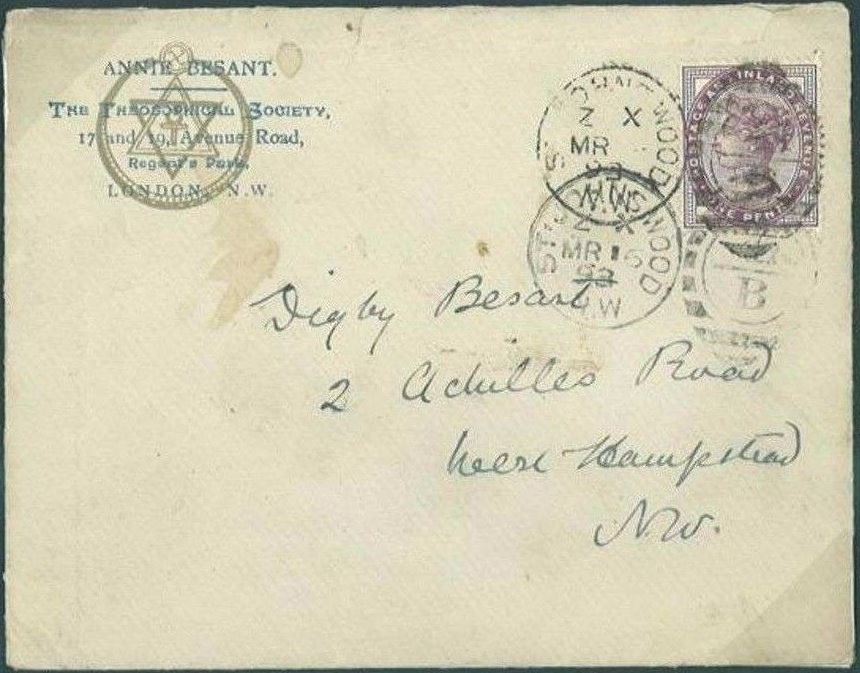 ANNIE BESANT.
THE THEOSOPHICAL SOCIETY,
17 and 19, Avenue Road,
Regent's Park,
LONDON, N.W.
ST JOHN'S WOOD
Z X
MR
93
N.W
ST JOHN'S WOOD
Z X
MR 16
93
N.W
POSTAGE AND INLAND REVENUE
ONE PENNY
B
Digby Besant
2 Achilles Road
West Hampstead
N.W.